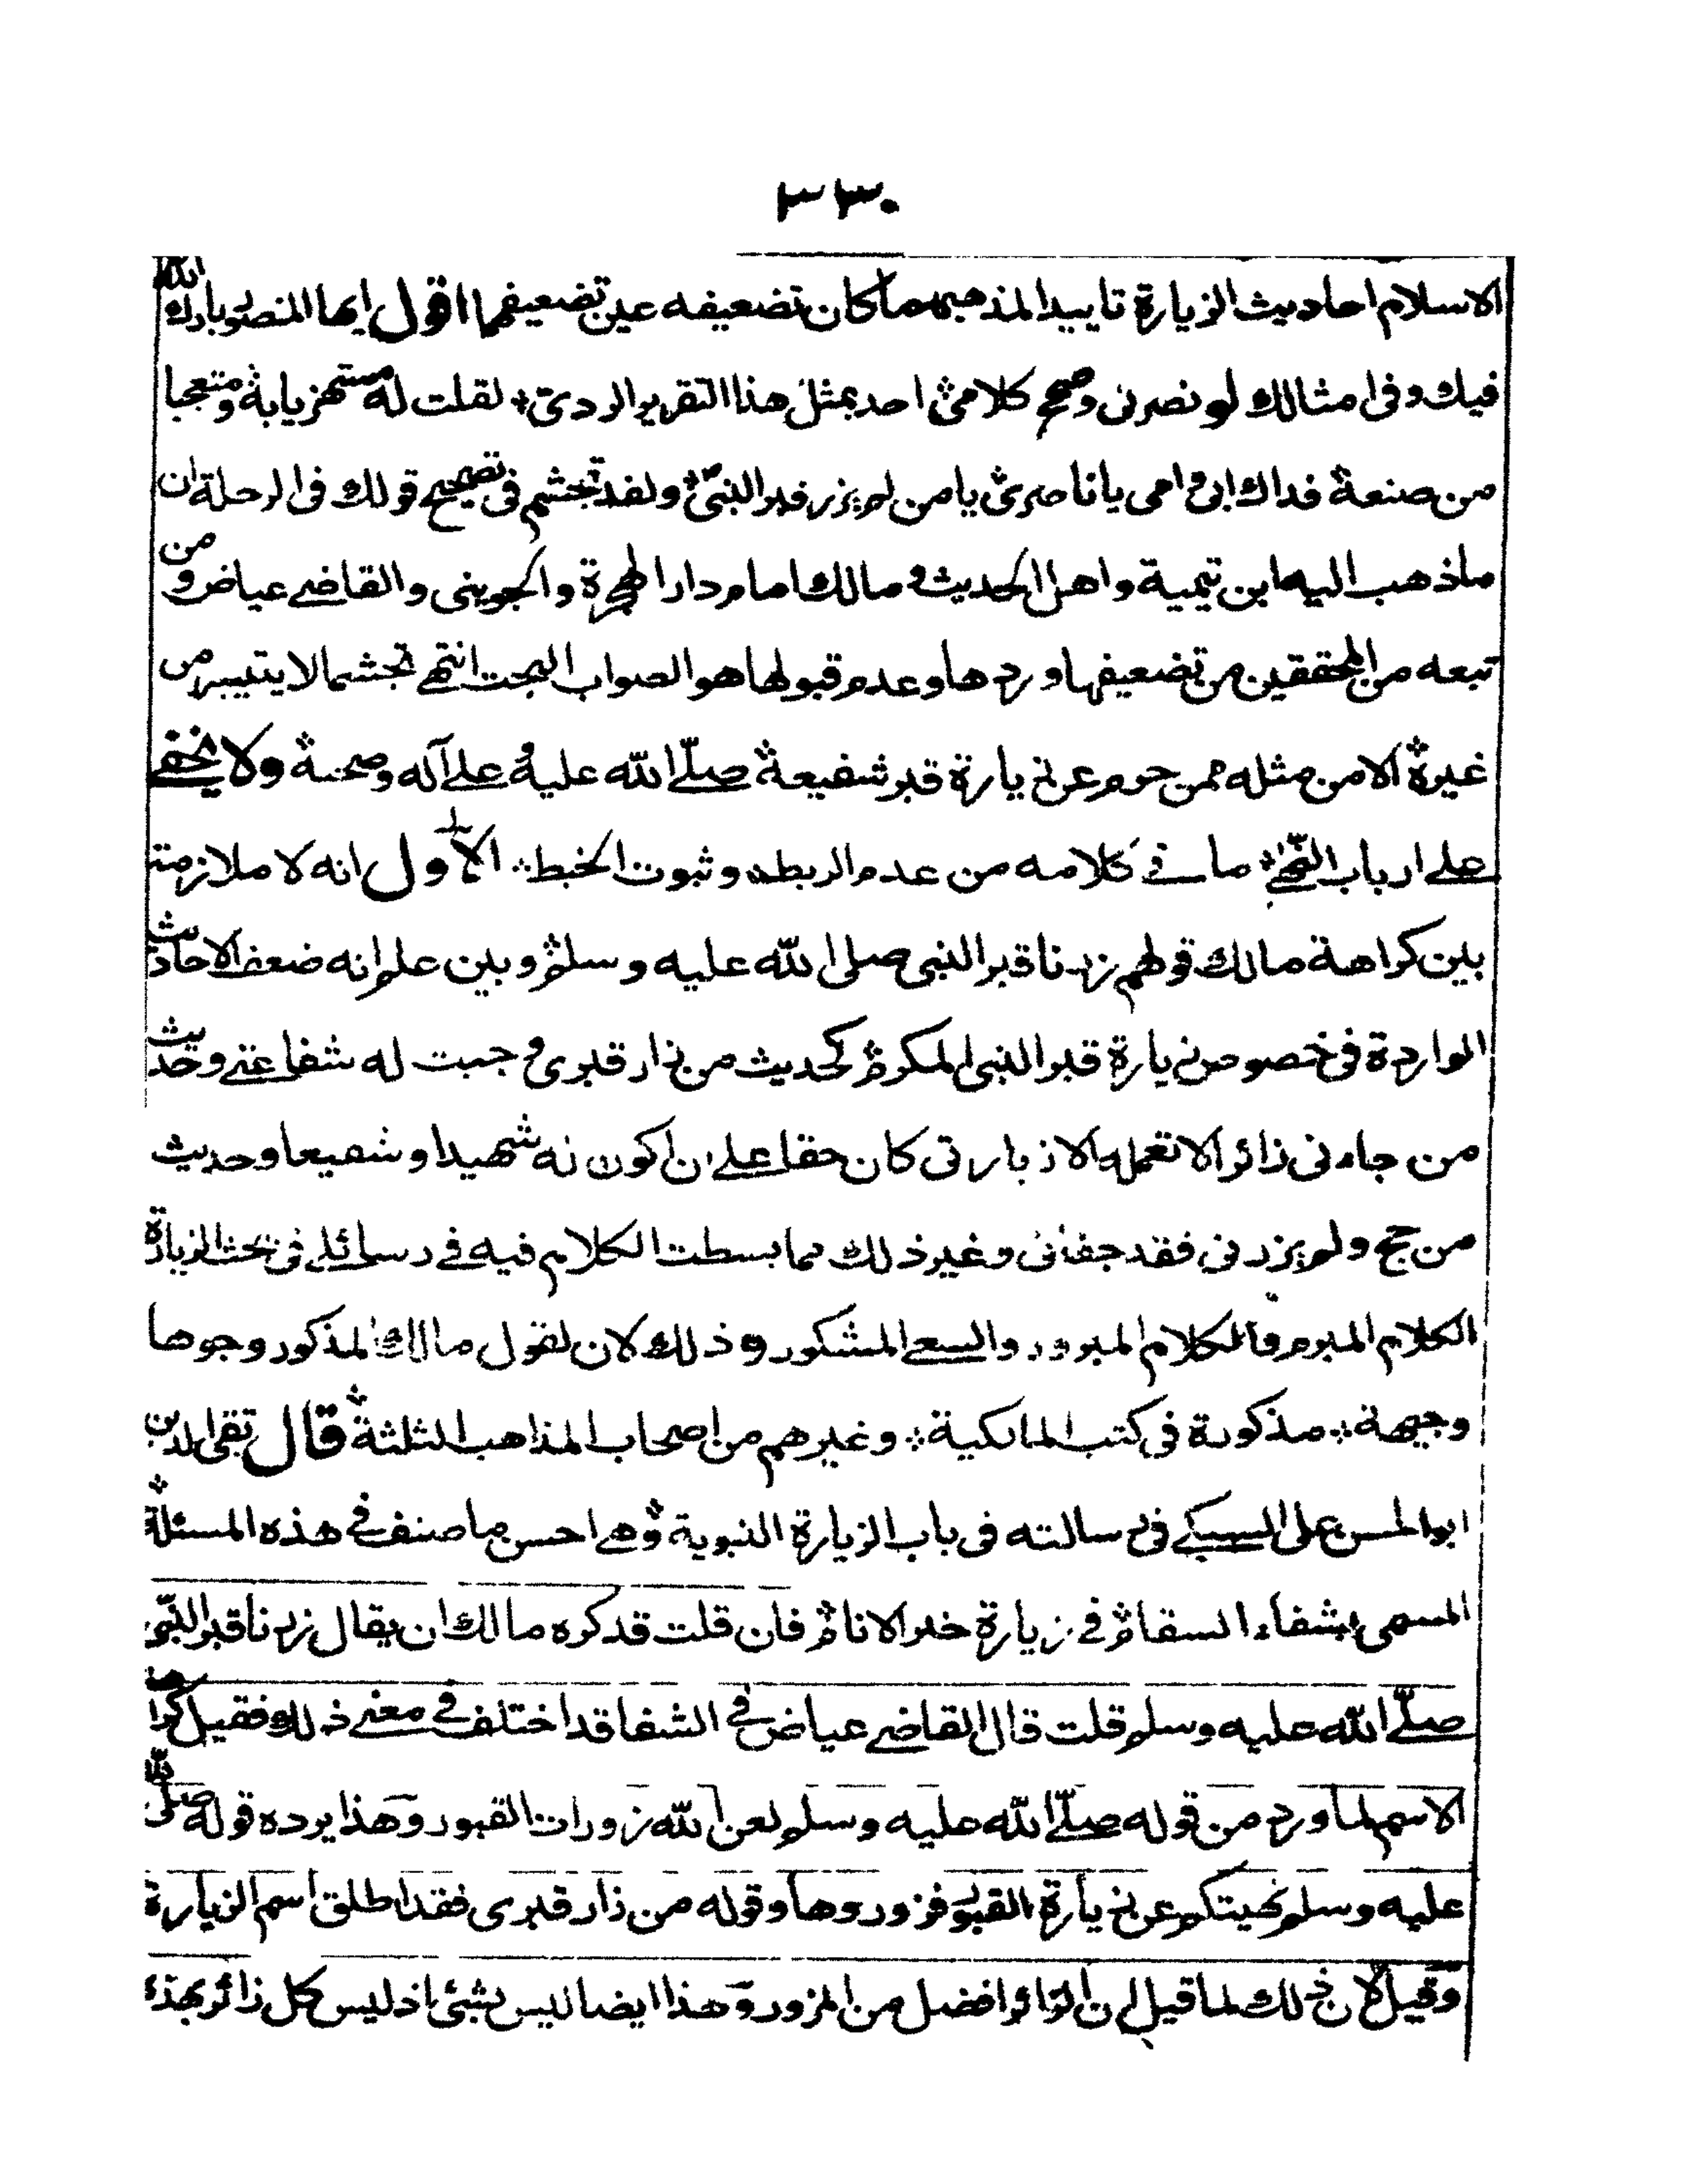 ٣٣٠
الاسلام احاديث الزيارة تاييدا لمذهبهما كان تضعيفه عين تضعيفهما اقول ايها المنصور بارك الله
فيك وفى امثالك لو نصرنى وصحح كلامى احد بمثل هذا التقرير الردى لقلت له مستهزيا به ومتعجبا
من صنعه فداك ابى وامى يا ناصرى يا من لم يزر قبر النبى ولقد تجشم فى تصحيح قولك فى الرحلة ان
ما ذهب اليه ابن تيمية واهل الحديث ومالك امام دار الهجرة والجوينى والقاضے عياض ومن
تبعه من المحققين من تضعيفها وردها وعدم قبولها هو الصواب البحت انتهى تجشما لا يتيسر من
غيره الا من مثله ممن حرم عن زيارة قبر شفيعه صلّے الله عليه وعلے آله وصحبه ولا يخفے
علے ارباب النهى ما فے كلامه من عدم الربط وثبوت الخبط الاول انه لا ملازمة
بين كراهة مالك قولهم زرنا قبر النبى صلى الله عليه وسلم وبين علم انه ضعف الاحاديث
الواردة فى خصوص زيارة قبر النبى المكرم كحديث من زار قبرى وجبت له شفاعتے وحديث
من جاءنى زائرا لا تعمله الا زيارتى كان حقا علے ان اكون له شهيدا وشفيعا وحديث
من حج ولم يزرنى فقد جفانى وغير ذلك مما بسطت الكلام فيه فے رسائلے فى بحث الزيارة
الكلام المبرم والكلام المبرور والسعے المشكور وذلك لان لقول مالك المذكور وجوها
وجيهة مذكورة فى كتب المالكية وغيرهم من اصحاب المذاهب الثلثة قال تقى الدين
ابو الحسن على السبكے فى رسالته فى باب الزيارة النبوية وهے احسن ما صنف فے هذه المسئلة
المسمى بشفاء السقام فے زيارة خير الانام فان قلت قد كره مالك ان يقال زرنا قبر النبى
صلّے الله عليه وسلم قلت قال القاضے عياض فے الشفا قد اختلف فے معنے ذلك فقيل كراهة
الاسم لما ورد من قوله صلّے الله عليه وسلم لعن الله زورات القبور وهذا يرده قوله صلى الله
عليه وسلم نهيتكم عن زيارة القبور فزوروها وقوله من زار قبرى فقد اطلق اسم الزيارة
وقيل لان ذلك لما قيل ان الزائر افضل من المزور وهذا ايضا ليس بشئ اذ ليس كل زائر بهذه